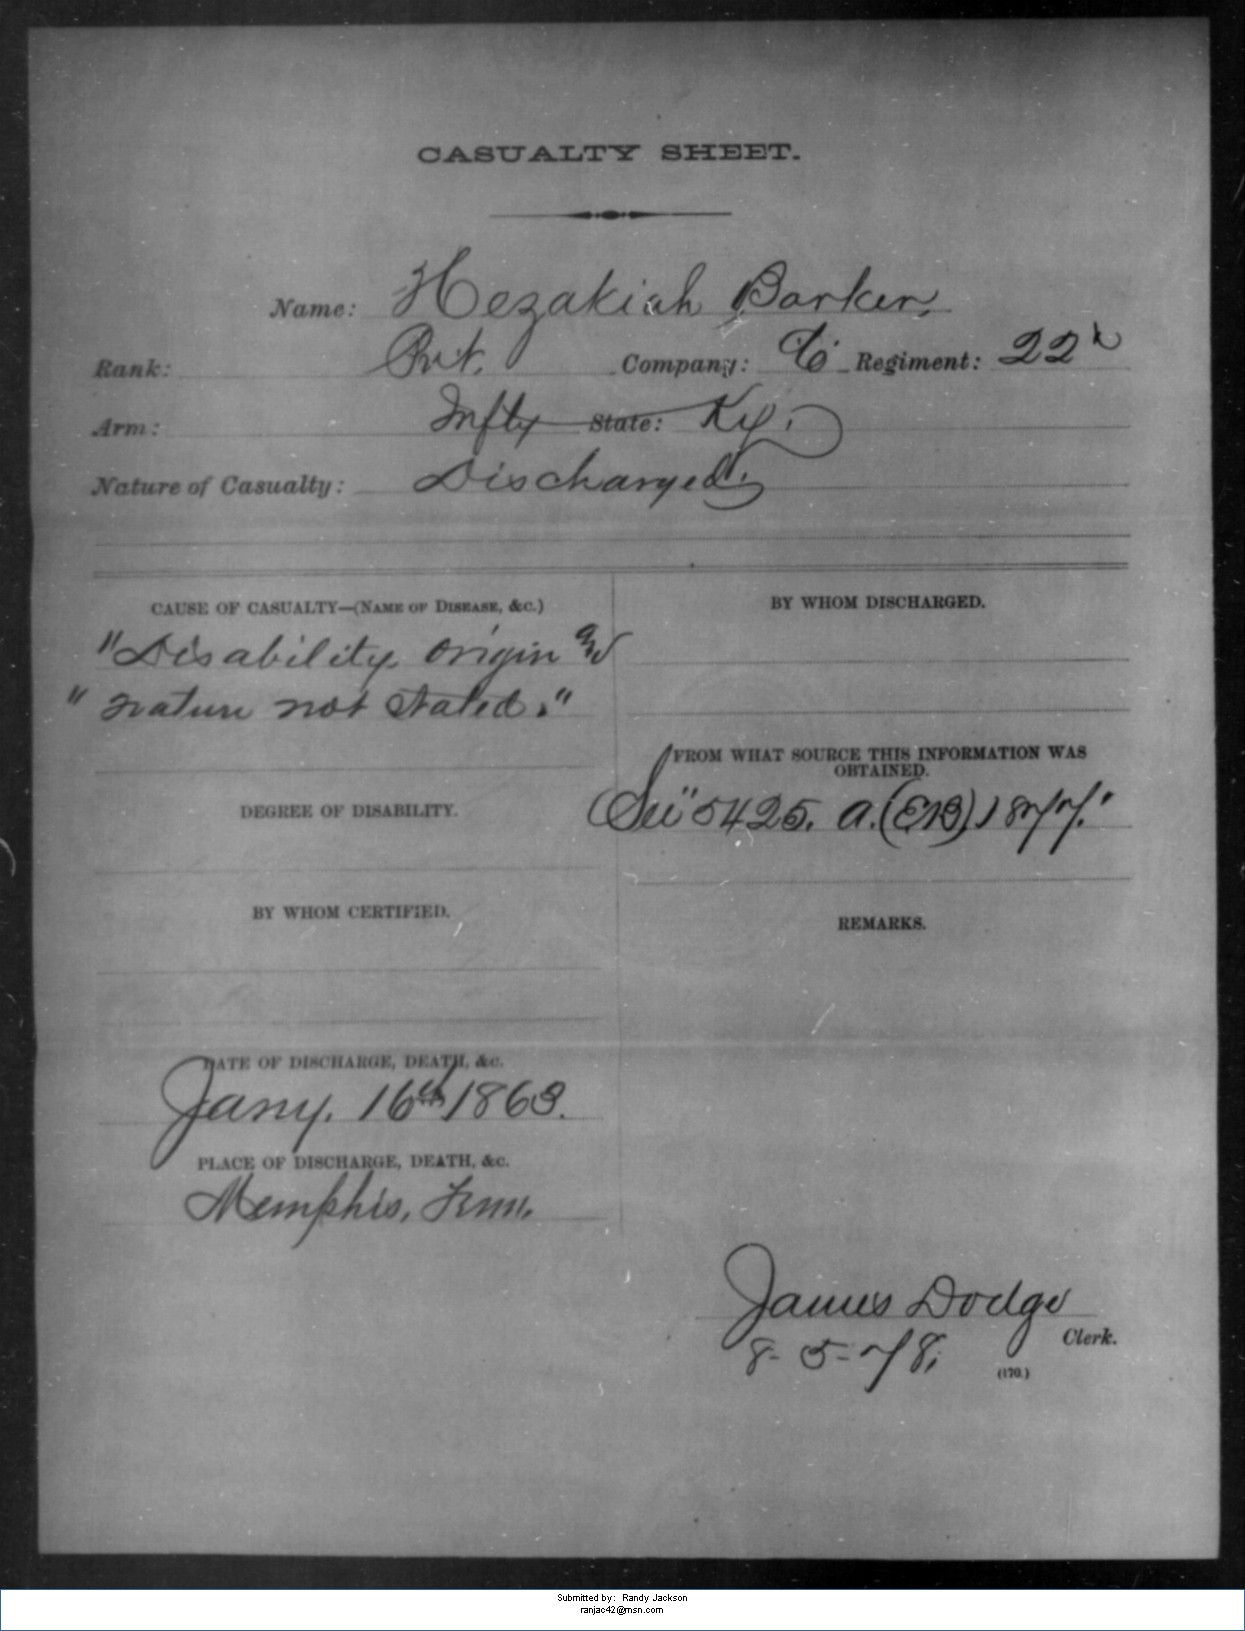 CASUALTY SHEET.
Name: Hezakiah Barker,
Rank: Pvt. Company: C Regiment: 22"
Arm: Infty State: Ky.
Nature of Casualty: Discharged.
CAUSE OF CASUALTY—(NAME OF DISEASE, &c.)
"Disability origin and
" nature not stated."
DEGREE OF DISABILITY.
BY WHOM CERTIFIED.
DATE OF DISCHARGE, DEATH, &c.
Jany. 16th 1863.
PLACE OF DISCHARGE, DEATH, &c.
Memphis, Tenn.
BY WHOM DISCHARGED.
FROM WHAT SOURCE THIS INFORMATION WAS
OBTAINED.
See "5425. A. (EB) 1877."
REMARKS.
James Dodge
Clerk.
8-5-78.
(170.)
Submitted by: Randy Jackson
ranjac42@msn.com